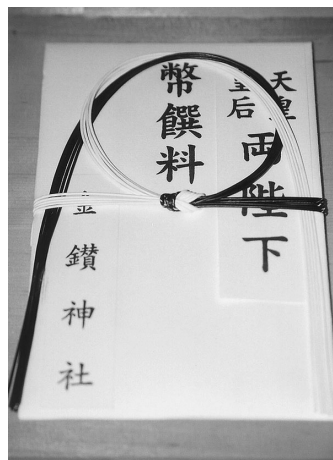 天皇
皇后
両陛下
幣饌料
金鑚神社